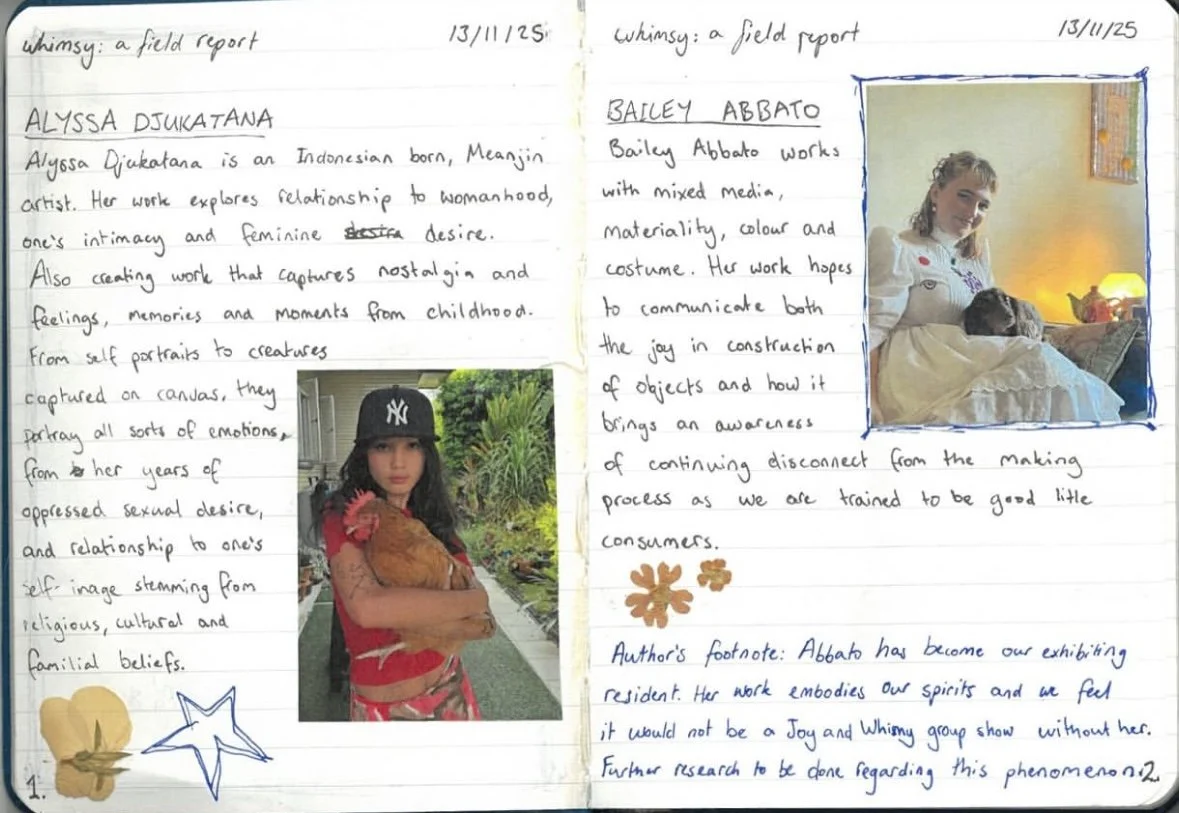 whimsy: a field report 13/11/25
ALYSSA DJUKATANA
Alyssa Djukatana is an Indonesian born, Meanjin
artist. Her work explores relationship to womanhood,
one's intimacy and feminine desire.
Also creating work that captures nostalgia and
feelings, memories and moments from childhood.
From self portraits to creatures
captured on canvas, they
portray all sorts of emotions,
from her years of
oppressed sexual desire,
and relationship to one's
self-image stemming from
religious, cultural and
familial beliefs.
NY
1.
whimsy: a field report 13/11/25
BAILEY ABBATO
Bailey Abbato works
with mixed media,
materiality, colour and
costume. Her work hopes
to communicate both
the joy in construction
of objects and how it
brings an awareness
of continuing disconnect from the making
process as we are trained to be good little
consumers.
Author's footnote: Abbato has become our exhibiting
resident. Her work embodies our spirits and we feel
it would not be a Joy and Whimsy group show without her.
Further research to be done regarding this phenomenon.
2.